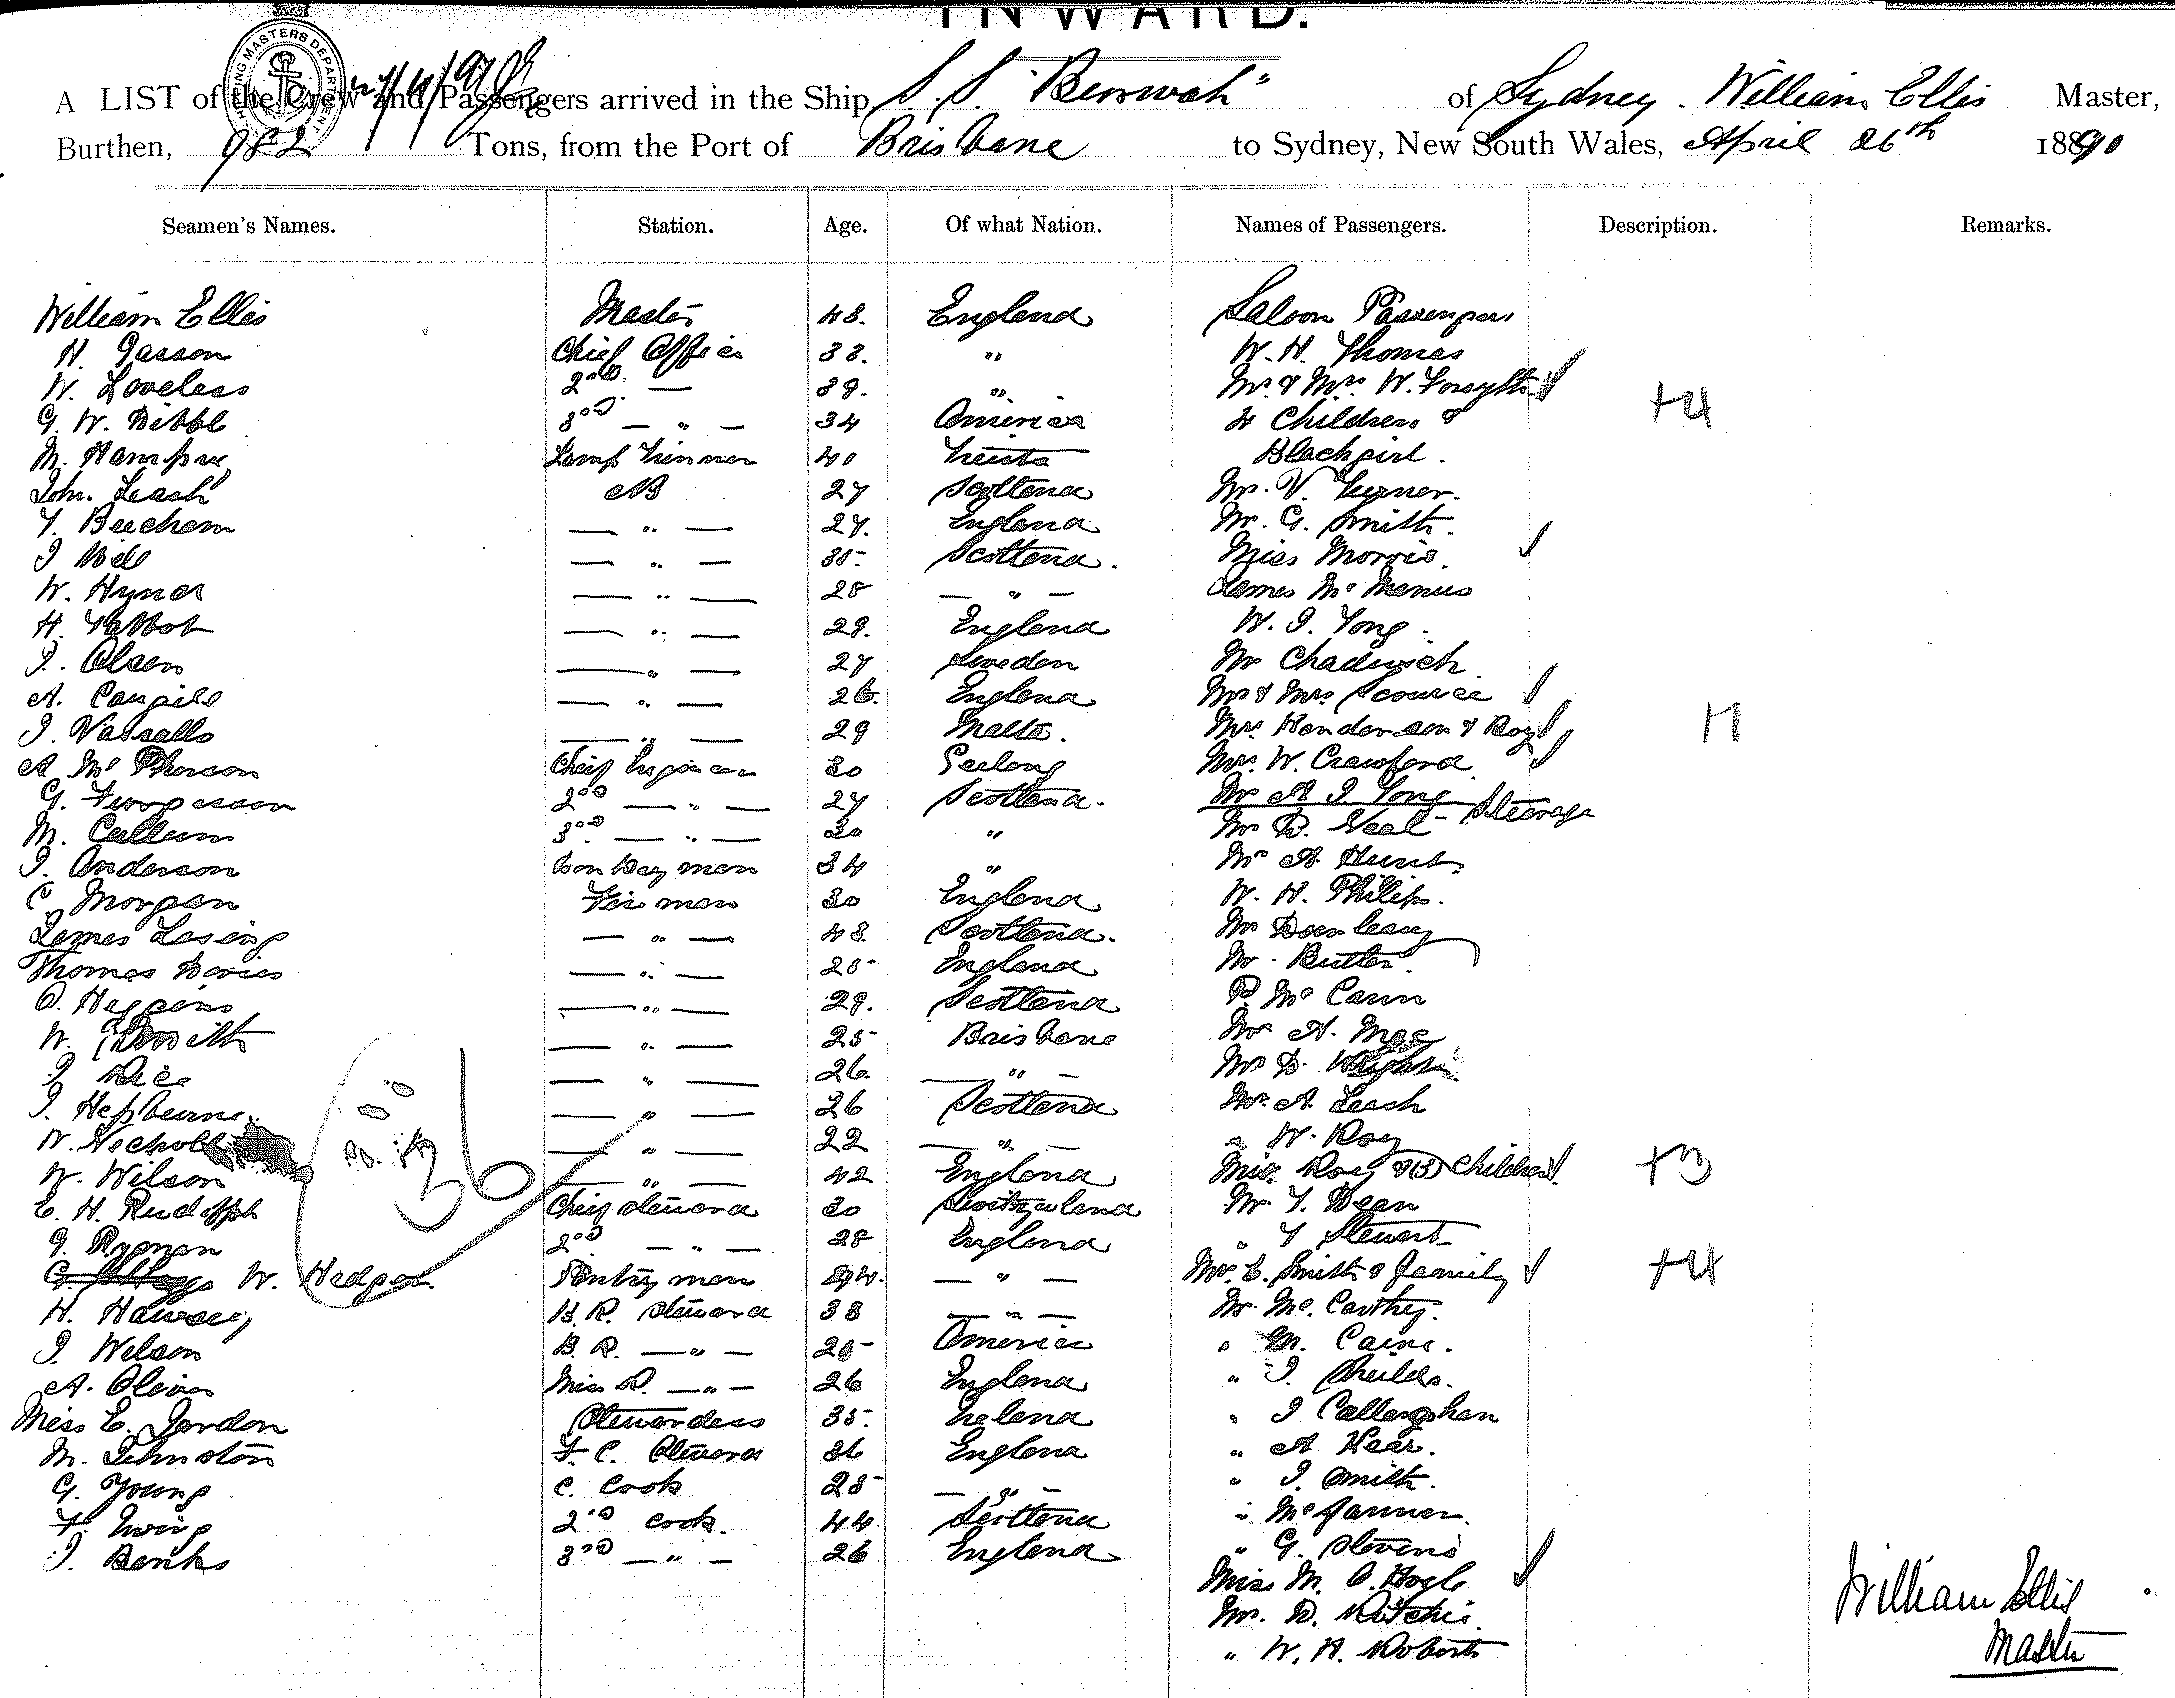 INWARD.
A LIST of the Crew and Passengers arrived in the Ship S.S. "Beerwah" of Sydney. William Ellis Master,
Burthen, 982 Tons, from the Port of Brisbane to Sydney, New South Wales, April 26th 1890
Seamen's Names. Station. Age. Of what Nation. Names of Passengers. Description. Remarks.
William Ellis Master 48. England Saloon Passengers
H. Gasson Chief Officer 33. " W. H. Thomas
W. Loveless 2nd — 39. " Mr. & Mrs. W. Forsyth
G. W. Dibble 3rd — " — 34 America 4 Children & +4
M. Lamp Trimmer 40 Blackgirl.
John. Leash AB 27 Scotland Mr. V. Turner.
T. Beecham — " — 27. England Mr. G. Smith.
J — " — 35. Scotland. Miss Morris.
W. Hynes — " — 28 — " — James McManus
H. Talbot — " — 29. England W. J. Tong.
J. Olsen — " — 27 Sweden Mr Chadwick
A. — " — 26. England Mr & Mrs
J. Vassallo — " — 29 Malta. Mrs. Henderson & Boy
A McPherson Chief Engineer 30 Geelong Mrs. W. Crawford
G. Fergusson 2nd — " — 27 Scotland. Mr A J Tong Steerage
M. Callum 3rd — " — 30 " Mr D. Neal
J. Anderson Donkey man 34 " Mr A Hunt
C Morgan Fire man 30 England W. H. Philips.
James — " — 48 Scotland. Mr Dunleavy
Thomas Davies — " — 25 England Mr. Butler.
O. Higgins — " — 29. Scotland P. McCann
W. Smith — " — 25 Brisbane Mr A.
J Rice — " — 26. — " — Mr D.
J. Hepburne — " — 26 Scotland Mr. A. Leash
W. Nicholl — " — 22 — " — " W. Roy
W. Wilson — " — 42 England Mrs. Roy & (3) Children +3
E. H. Rudolph Chief Steward 30 Switzerland Mr T. Dean
G. Ryman 2nd — " — 28 England " T Stewart
W. Hedges Pantry man — " — Mr. E. Smith & family +4
H. B. R. Steward 38 — " — Mr. McCarthy.
J. Wilson B. R. — " — 20 America " M. Cains.
A. Oliver Mess R. — " — 26 England " J. Sheilds.
Miss E. Jordon Stewardess 35. Ireland " J Callaghan
M. Johnston F. C. Steward 26 England " A Kear.
G. Young C. Cook 28 — " — " J. Smith.
F. Ewing 2nd Cook. 44 Scotland "
J. Banks 3rd — " — 26 England " G. Stevens
Miss M. C. Hogh
Mr. D. Ritchie
" W. H. Roberts
36
William Ellis
Master